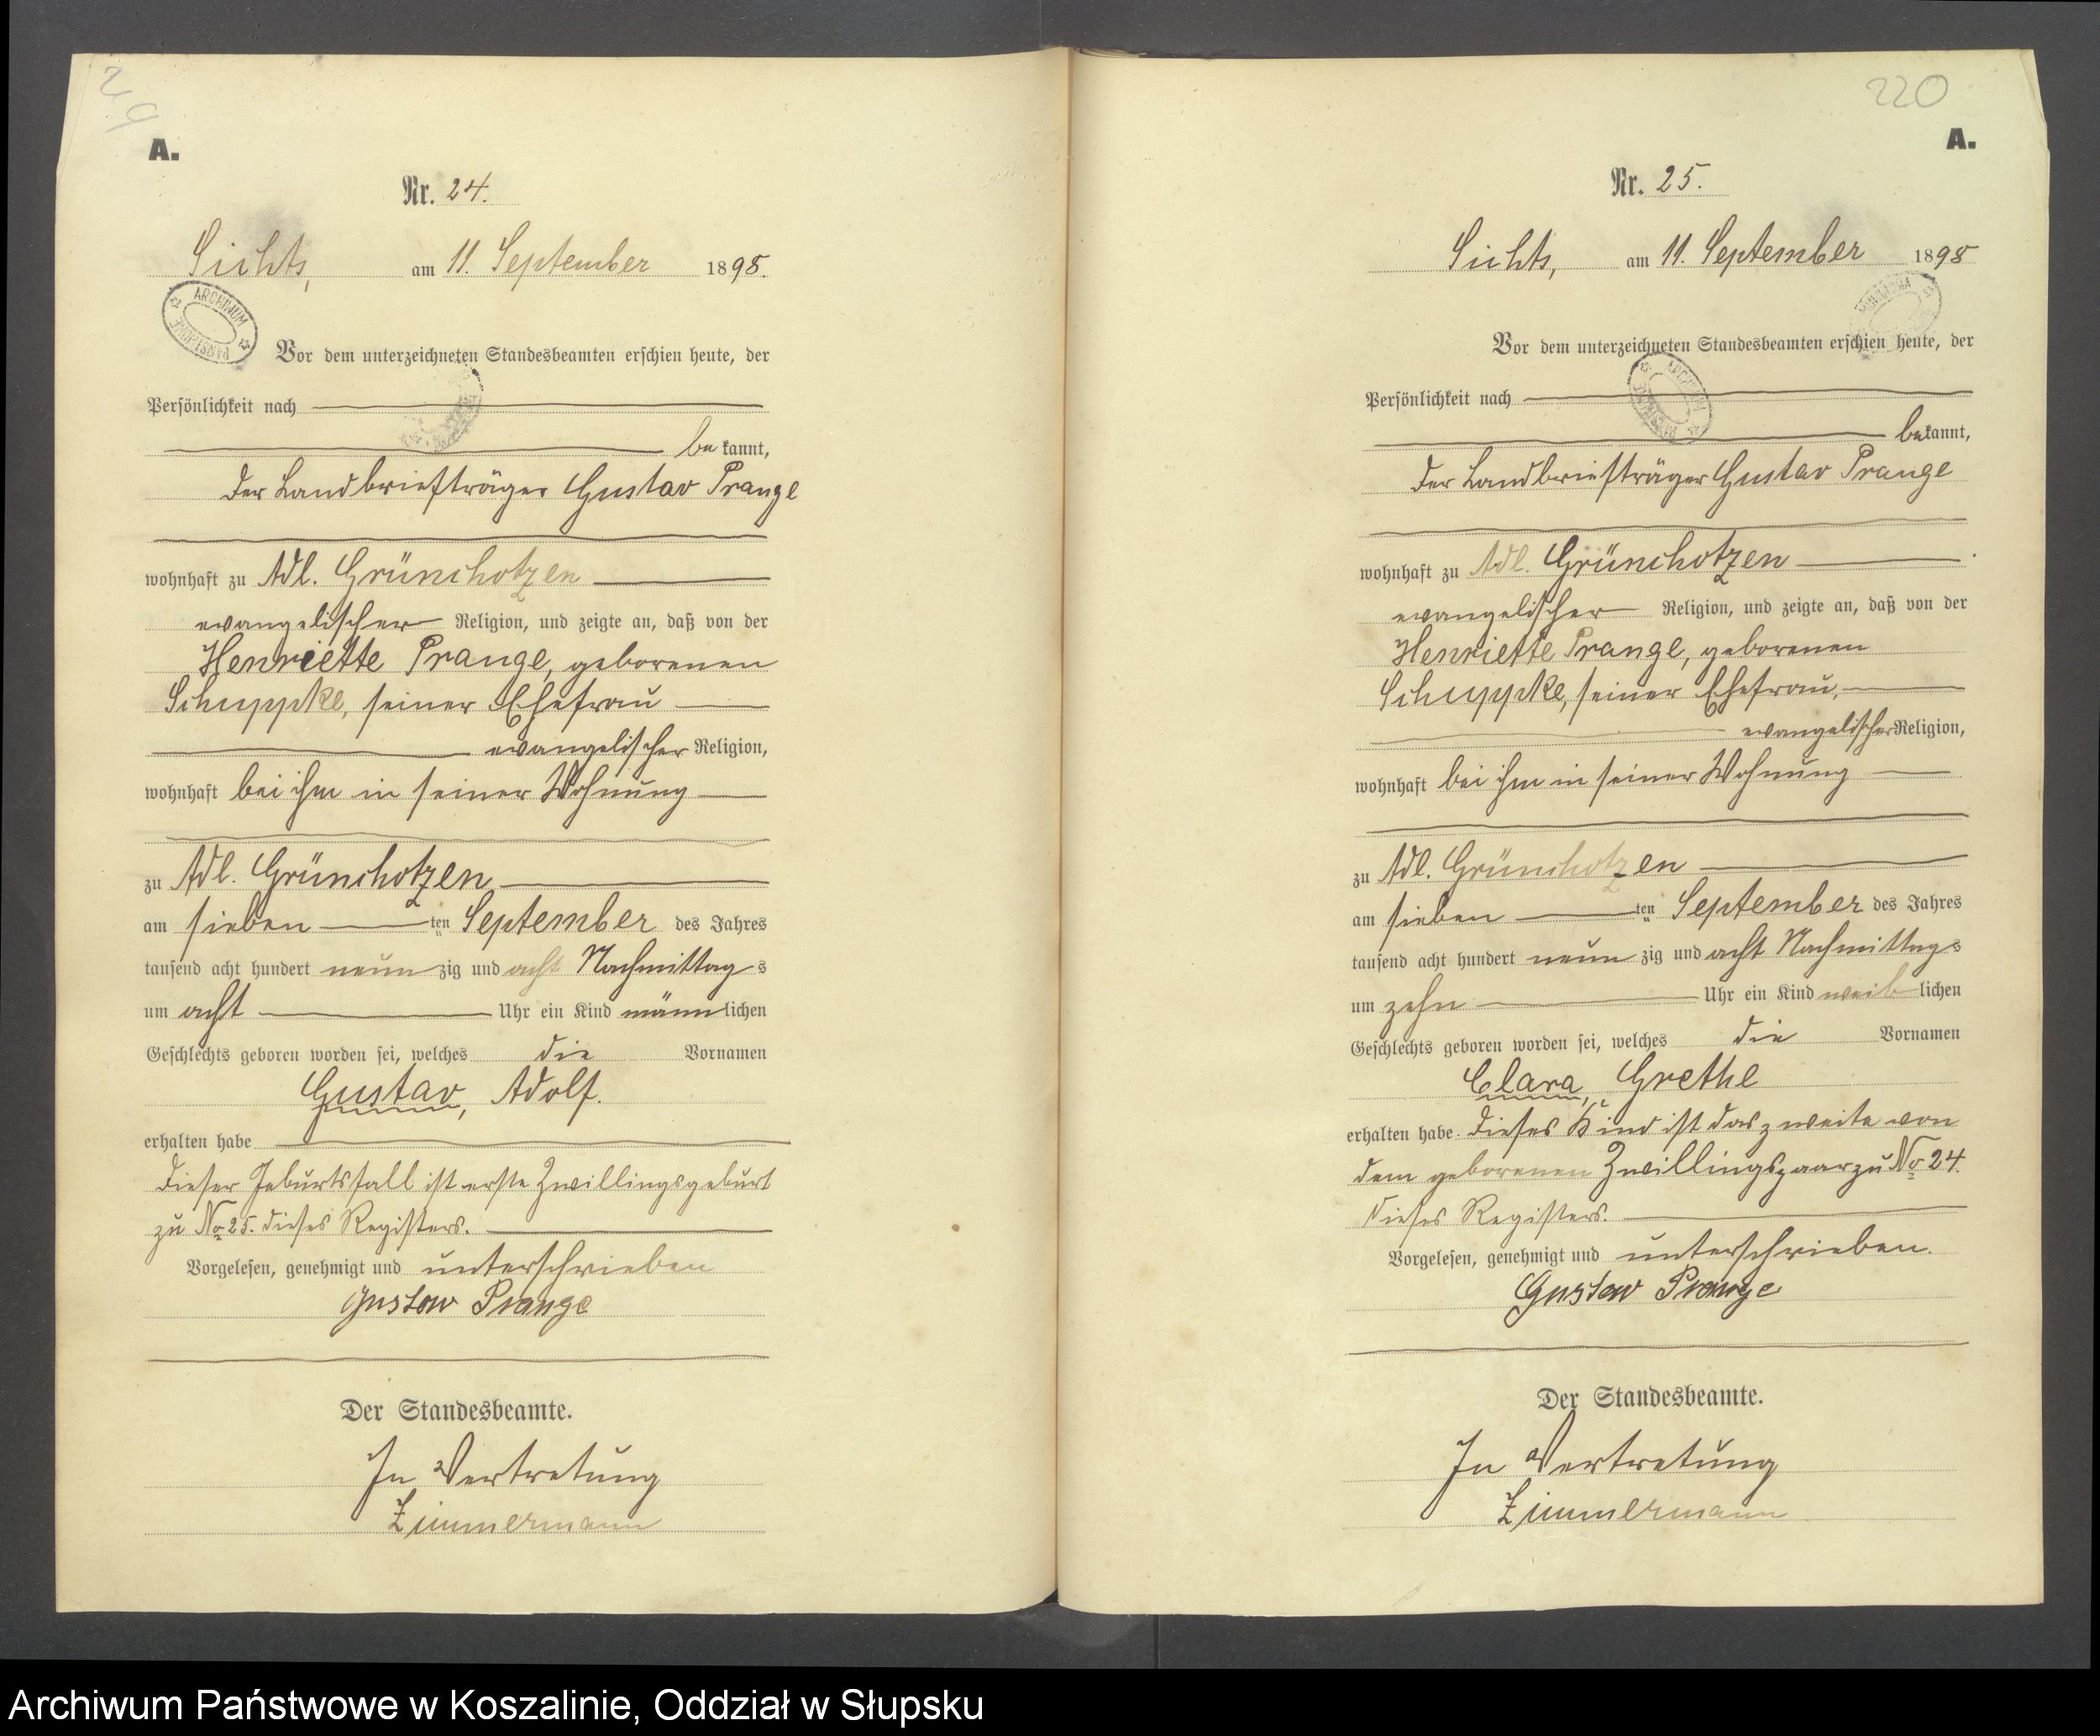 219
A.
Nr. 24.
Sichts, am 11. September 1898.
ARCHIWUM PAŃSTWOWE
Vor dem unterzeichneten Standesbeamten erschien heute, der
Persönlichkeit nach
bekannt,
der Landbriefträger Gustav Prange
wohnhaft zu Adl. Grünchotzen
evangelischer Religion, und zeigte an, daß von der
Henriette Prange, geborenen
Schuppke, seiner Ehefrau
evangelischer Religion,
wohnhaft bei ihm in seiner Wohnung
zu Adl. Grünchotzen
am sieben ten September des Jahres
tausend acht hundert neun zig und acht Nachmittags
um acht Uhr ein Kind männlichen
Geschlechts geboren worden sei, welches die Vornamen
Gustav, Adolf.
erhalten habe
Dieser Geburtsfall ist erste Zwillingsgeburt
zu No 25. dieses Registers.
Vorgelesen, genehmigt und unterschrieben
Gustav Prange
Der Standesbeamte.
In Vertretung
Zimmermann
220
A.
Nr. 25.
Sichts, am 11. September 1898
Vor dem unterzeichneten Standesbeamten erschien heute, der
Persönlichkeit nach
bekannt,
der Landbriefträger Gustav Prange
wohnhaft zu Adl. Grünchotzen
evangelischer Religion, und zeigte an, daß von der
Henriette Prange, geborenen
Schuppke, seiner Ehefrau,
evangelischer Religion,
wohnhaft bei ihm in seiner Wohnung
zu Adl. Grünchotzen
am sieben ten September des Jahres
tausend acht hundert neun zig und acht Nachmittags
um zehn Uhr ein Kind weiblichen
Geschlechts geboren worden sei, welches die Vornamen
Clara, Grethe
erhalten habe. Dieses Kind ist das zweite von
dem geborenen Zwillingspaar zu No 24.
dieses Registers.
Vorgelesen, genehmigt und unterschrieben.
Gustav Prange
Der Standesbeamte.
In Vertretung
Zimmermann
Archiwum Państwowe w Koszalinie, Oddział w Słupsku